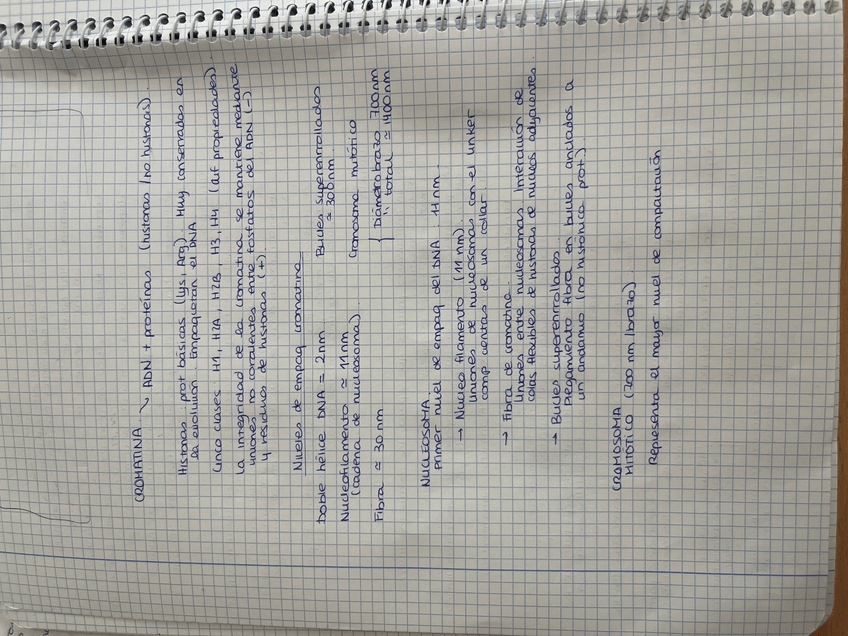 CROMATINA ↘ ADN + proteínas (histonas / no histonas).
Histonas: prot básicas (Lys, Arg). Muy conservadas en
la evolución. Empaquetan el ADN
Cinco clases H1, H2A, H2B, H3, H4 (dif propiedades)
La integridad de la cromatina se mantiene mediante
uniones no covalentes entre fosfatos del ADN (-)
y residuos de histonas (+).
Niveles de empaq cromatina
Doble hélice DNA = 2nm
Nucleofilamento ≃ 11nm
(cadena de nucleosoma)
Fibra ≃ 30 nm
Bucles superenrollados
≃ 300nm.
Cromosoma mitótico
{ Diámetro brazo 700nm
" total ≃ 1400nm
NUCLEOSOMA
Primer nivel de empaq del DNA. 11nm.
→ Nucleo filamento (11 nm).
Uniones de nucleosomas con el linker
comp cuentas de un collar.
→ Fibra de cromatina.
Uniones entre nucleosomas. Interacción de
colas flexibles de histonas de nucleos adyacentes
→ Bucles superenrrollados.
Plegamiento fibra en bucles anclados a
un andamio (no histónica prot).
CROMOSOMA
MITÓTICO (700 nm / brazo)
Representa el mayor nivel de compactación